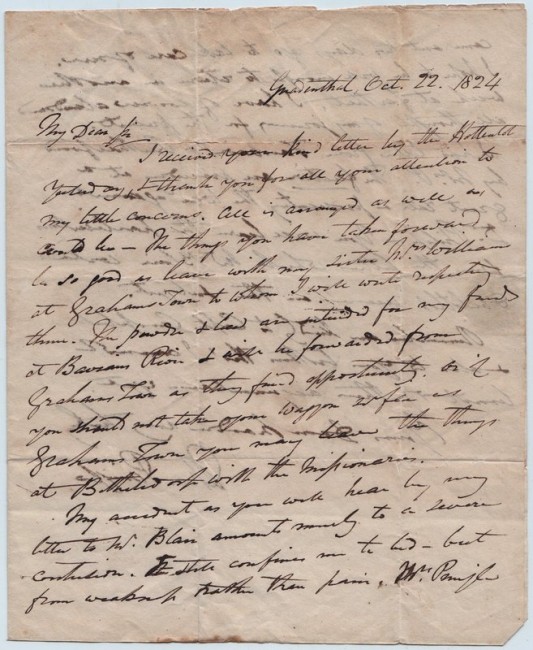 Gnadenthal, Oct. 22. 1824
My Dear Sir
I received your kind letter by the Hottentot
yesterday, & thank you for all your attention to
my little concerns. All is arranged as well as
could be – The things you have taken forward,
be so good as leave with my sister Mrs William
at Grahams Town to whom I will write respecting
them. The powder & lead are intended for my friends
at Bavians River & will be forwarded from
Grahams Town as they find opportunity. Or if
you should not take your waggon as far as
Grahams Town you may leave the things
at Bethelsdorp with the Missionaries.
My accident as you will hear by my
letter to Mr. Blair amounts merely to a severe
contusion. It still confines me to bed – but
from weakness rather than pain. Mrs Pringle